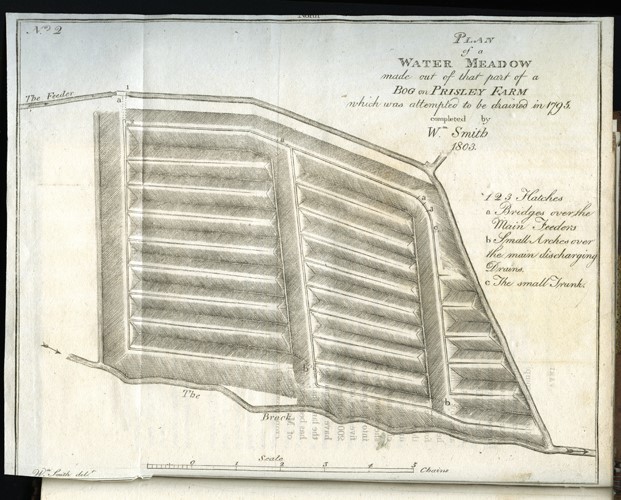 North
No. 2
PLAN
of a
WATER MEADOW
made out of that part of a
BOG on PRISLEY FARM
which was attempted to be drained in 1795.
completed by
Wm. Smith
1803.
The Feeder
1
a
2
3
c
1 2 3 Hatches
a Bridges over the
Main Feeders
b Small Arches over
the main discharging
Drains.
c The small Trunk.
b
b
The
Brook
Scale
0 1 2 3 4 5
Chains
Wm. Smith delt.